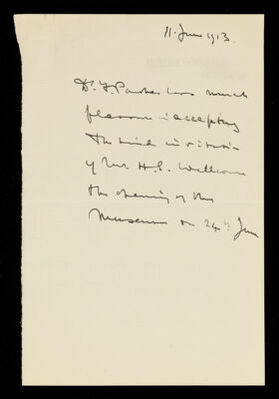 11. June 1913.
Dr. F. Parkes has much
pleasure in accepting
the kind invitation
of Mr H. S. Wellcome
the opening of the
Museum on 24th June